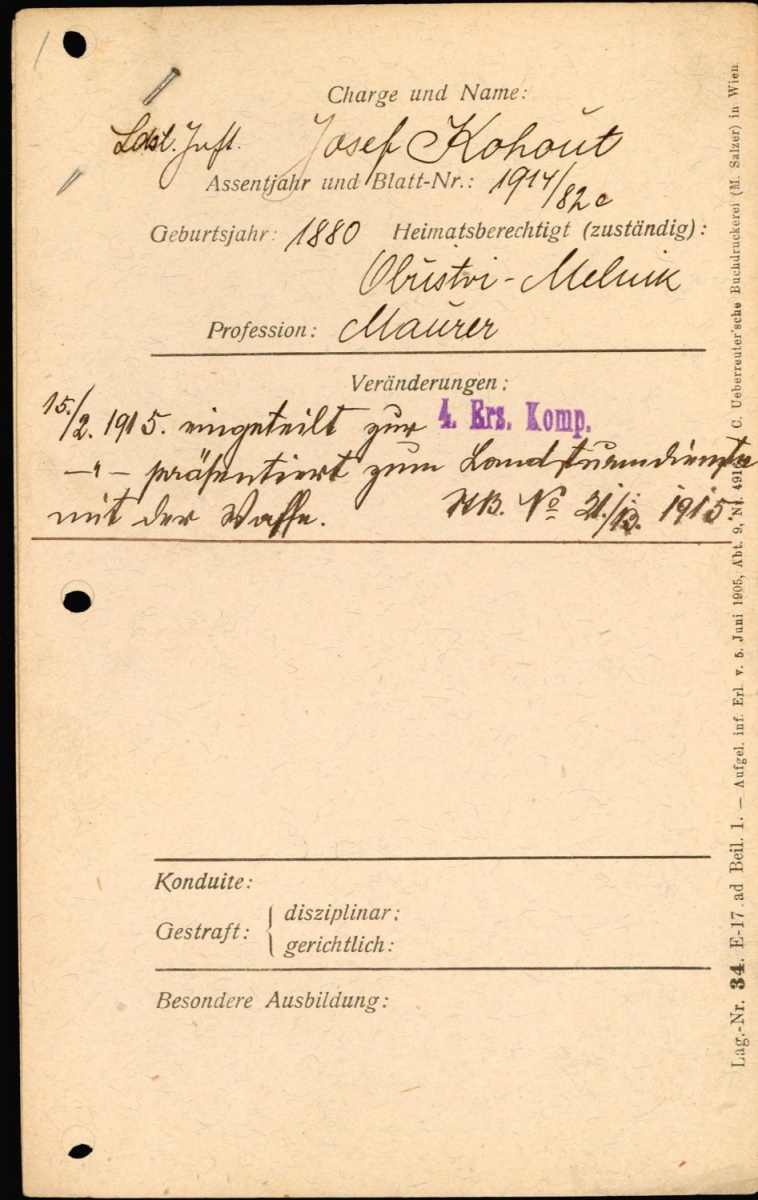 Charge und Name:
Ldst. Inft. Josef Kohout
Assentjahr und Blatt-Nr.: 1914/82c
Geburtsjahr: 1880 Heimatsberechtigt (zuständig):
Obristvi-Melnik
Profession: Maurer
Veränderungen:
15./2. 1915. eingeteilt zur 4. Ers. Komp.
—"— präsentiert zum Landsturmdienste
mit der Waffe. No 1915
Konduite:
Gestraft: { disziplinar:
gerichtlich:
Besondere Ausbildung:
Lag.-Nr. 34. E-17 ad Beil. 1. — Aufgel. inf. Erl. v. 5. Juni 1905, Abt. 9, Nr. 491 C. Ueberreuter'sche Buchdruckerei (M. Salzer) in Wien